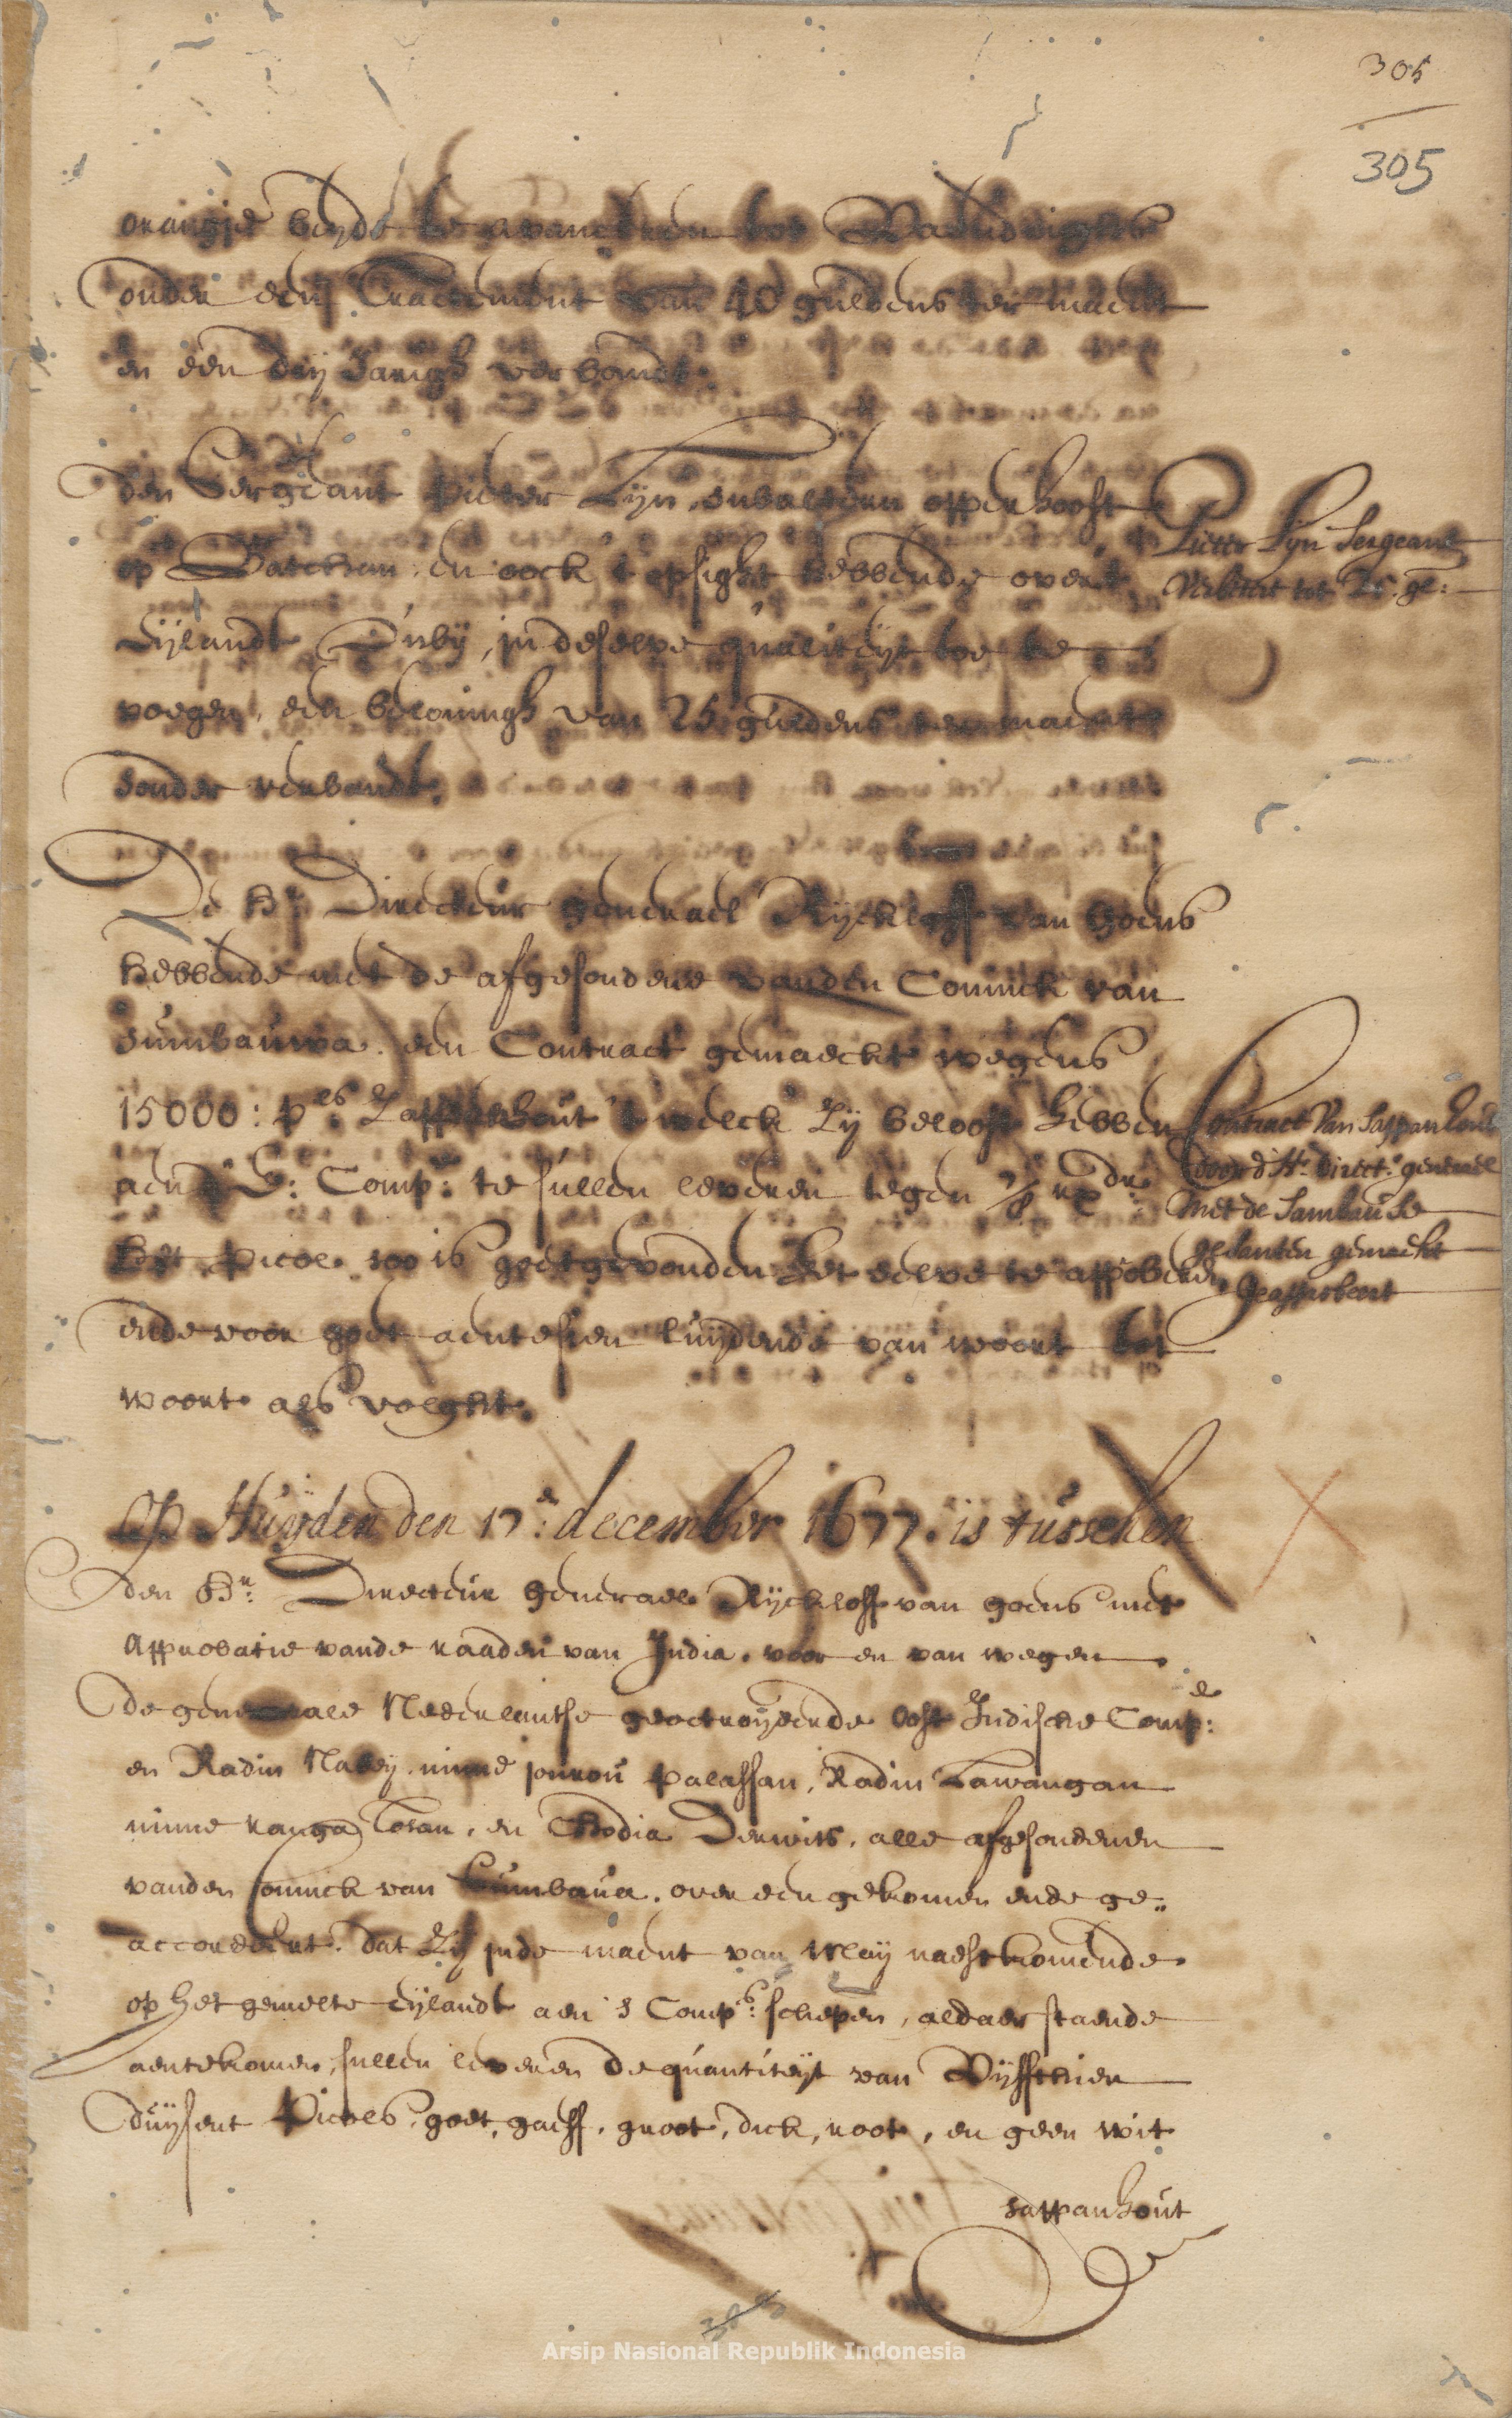 305
305
orangie
onder een Tractement van 40 guldens ter maent
en een drij Jarigh verbandt.
den Sergeant Pieter Lijn, opperhooft
op Batchian, en oock t opsight hebbende over t
Eijlandt Oubij, in deselve qualiteijt toe te
voegen, een beloningh van 25 guldens ter maent
sonder verbandt.
Pieter Lijn Sergeant
verbetert tot 25. gl:
De Hr. Directeur generael Rijckloff van Goens
hebbende met de afgesondene vanden Coninck van
Sumbauwa. een Contract gemaeckt wegens
15000: pls Zappanhout 't welck Zij belooft hebben
aen d' E: Comp: te sullen leveren tegen rxdr:
het Picol. soo is goetgevonden het selve te approberen
ende voor goet aentesien luijdende van woort tot
woort als volght.
Contract van Sappanhout
door d' Hr. Direct: generael
met de Sambause
gesanten gemaeckt
geapprobeert
Op Huijden den 17en: december 1677. is tusschen
den Hr: Directeur generael Rijckloff van goens met
Approbatie vande raaden van India. voor en van wegen
De generale Nederlantse geoctroijeerde Oost Indische Compe:
en Radin Nabeij. nime jourou Palassan, Radin Lawangan
nime ranga Tosan, en Chodia Derwis, alle afgesondenen
vanden Coninck van Sumbaua. over een gekomen ende ge„
accordeert. dat Zij inde maent van Maij naestkomende
op het gemelte Eijlandt aen 's Comps: schepen, aldaer staende
aentekomen, sullen leveren De quantiteijt van Vijffthien
duijsent Picols, goet, gaeff, groot, dick, root, en geen wit
sappanhout
Arsip Nasional Republik Indonesia